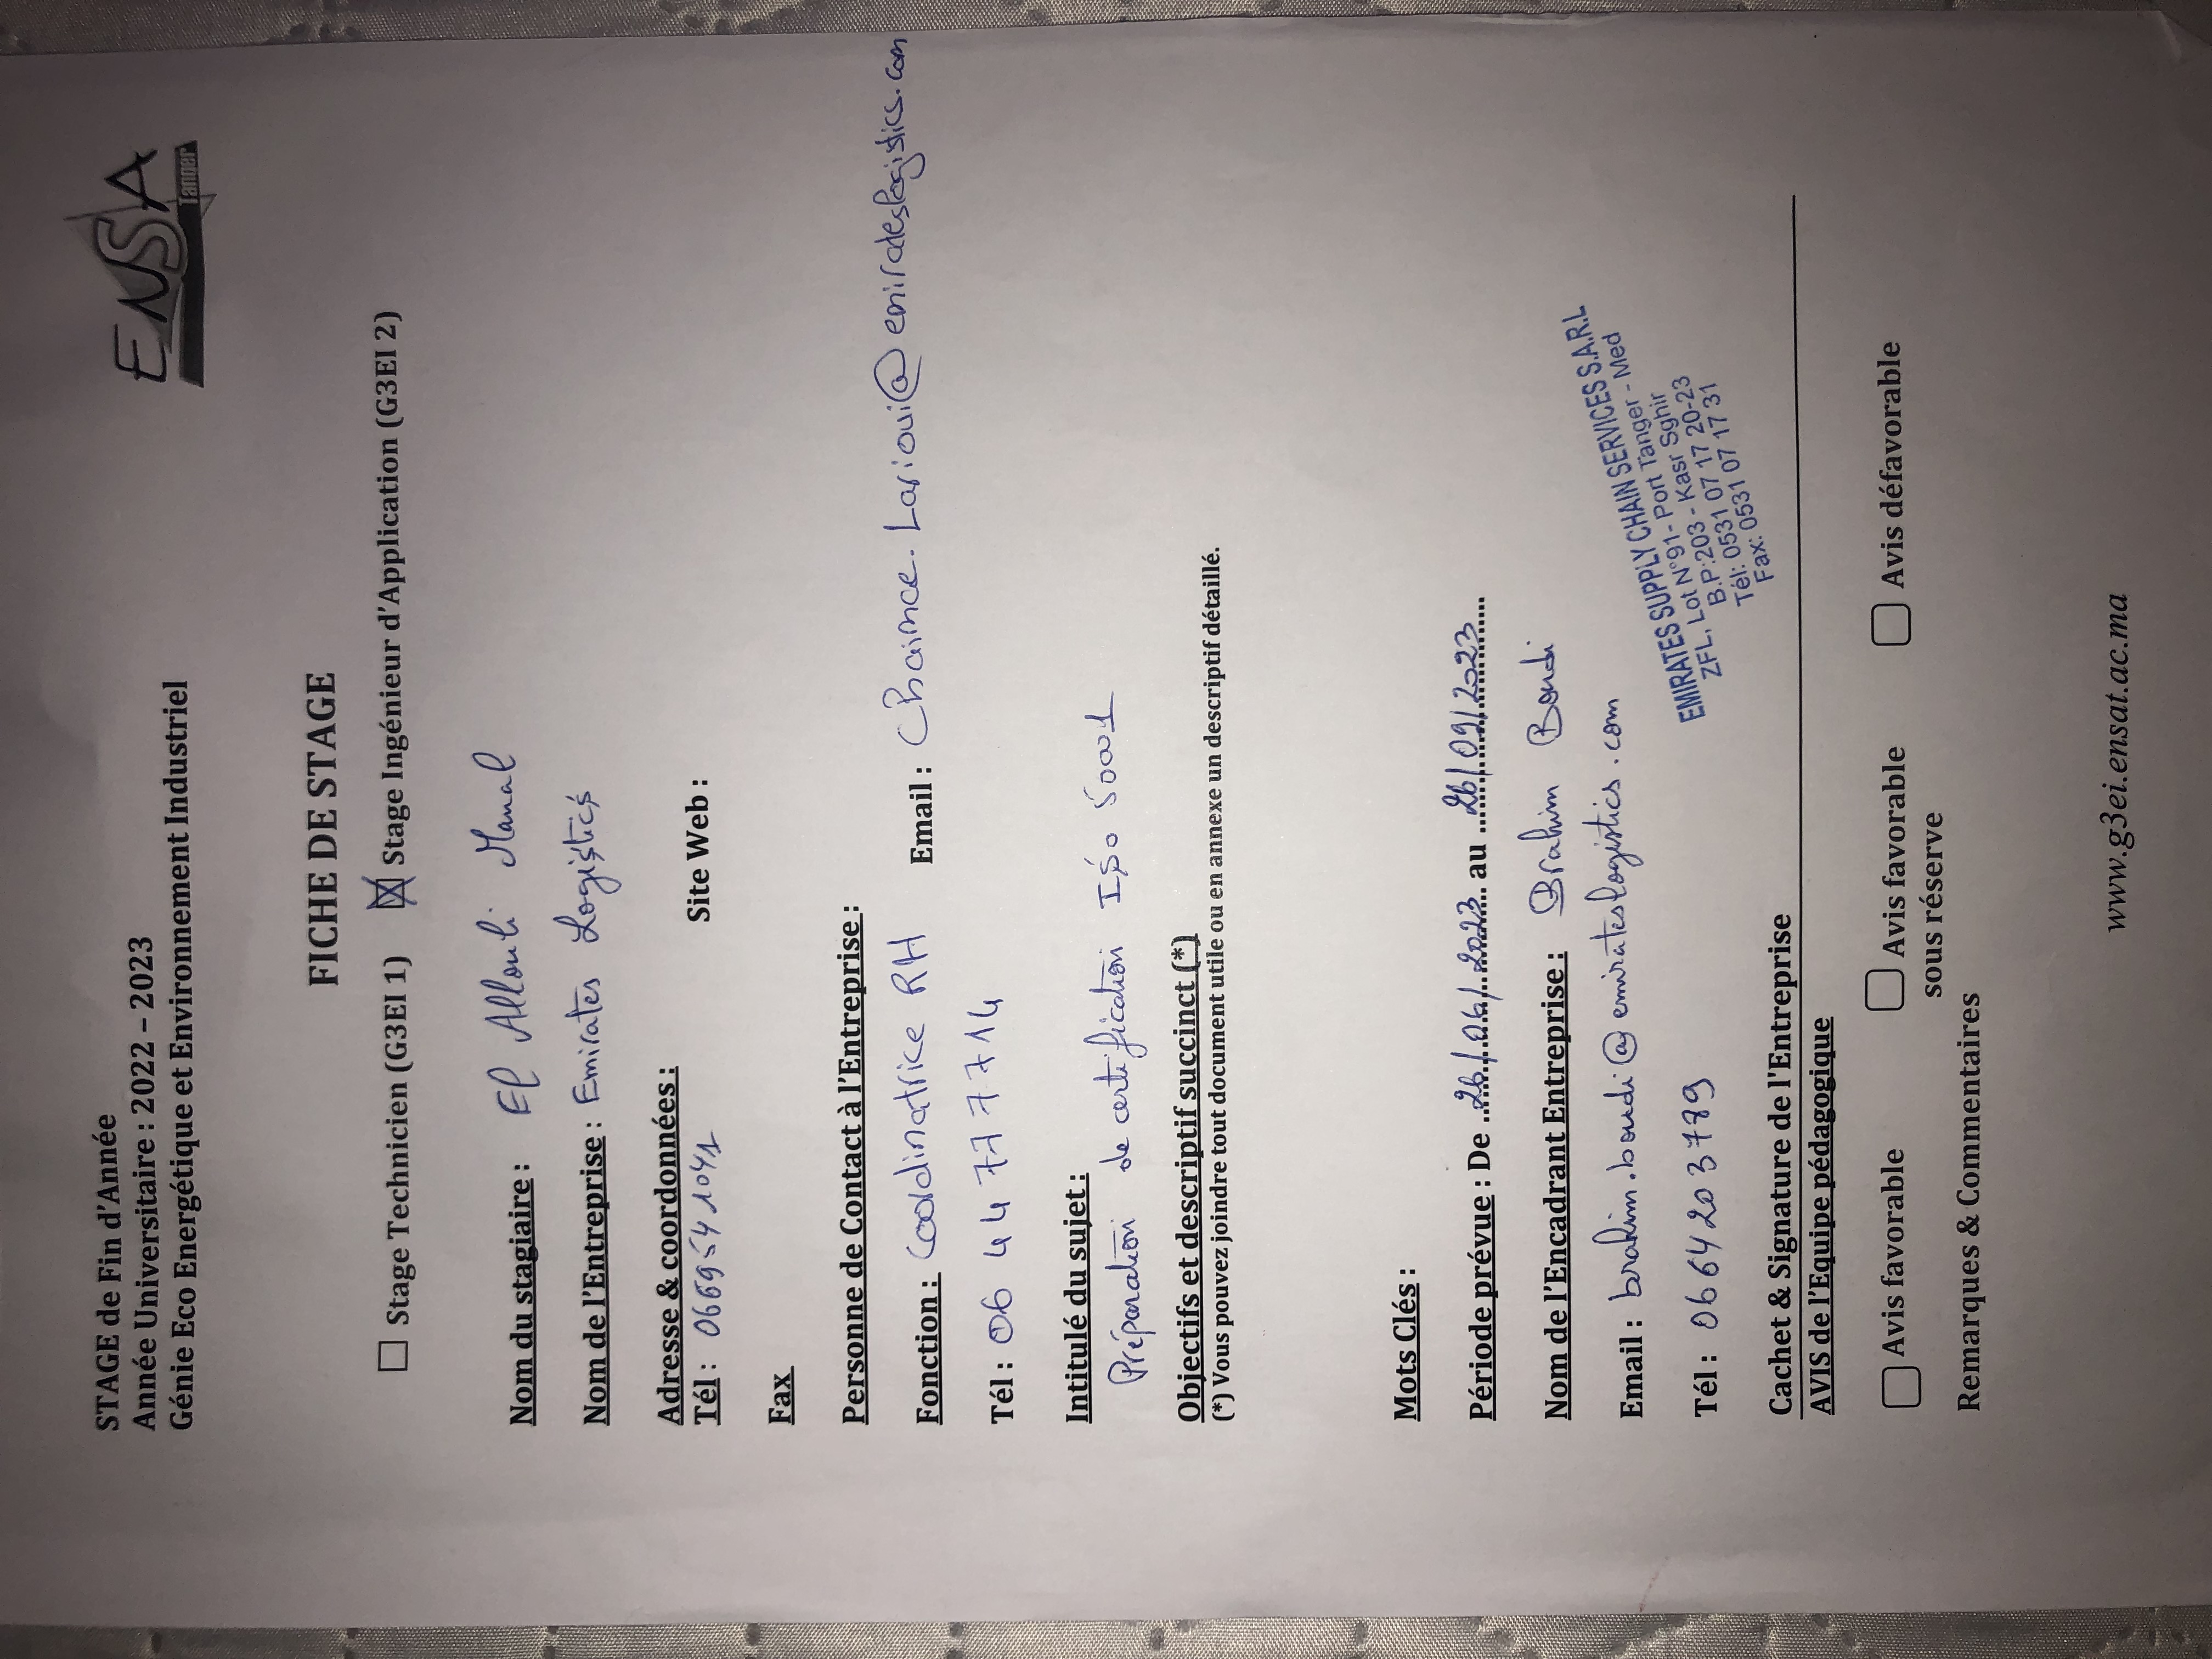 STAGE de Fin d'Année
Année Universitaire : 2022 – 2023
Génie Eco Energétique et Environnement Industriel
ENSA
Tanger
FICHE DE STAGE
Stage Technicien (G3EI 1) Stage Ingénieur d'Application (G3EI 2)
Nom du stagiaire : El Allouli Manal
Nom de l'Entreprise : Emirates Logistics
Adresse & coordonnées :
Tél : 0669541041 Site Web :
Fax
Personne de Contact à l'Entreprise :
Fonction : Coordinatrice RH Email : Chaimae.Larioui@emirateslogistics.com
Tél : 06 44 77 77 14
Intitulé du sujet :
Préparation de certification ISO 50001
Objectifs et descriptif succinct (*)
(*) Vous pouvez joindre tout document utile ou en annexe un descriptif détaillé.
Mots Clés :
Période prévue : De 26/06/2023 au 26/09/2023
Nom de l'Encadrant Entreprise : Brahim Boudi
Email : brahim.boudi@emirateslogistics.com
Tél : 0664203789
EMIRATES SUPPLY CHAIN SERVICES S.A.R.L
ZFL, Lot N°91- Port Tanger - Med
B.P:203 - Kasr Sghir
Tél: 0531 07 17 20-23
Fax: 0531 07 17 31
Cachet & Signature de l'Entreprise
AVIS de l'Equipe pédagogique
Avis favorable Avis favorable sous réserve Avis défavorable
Remarques & Commentaires
www.g3ei.ensat.ac.ma